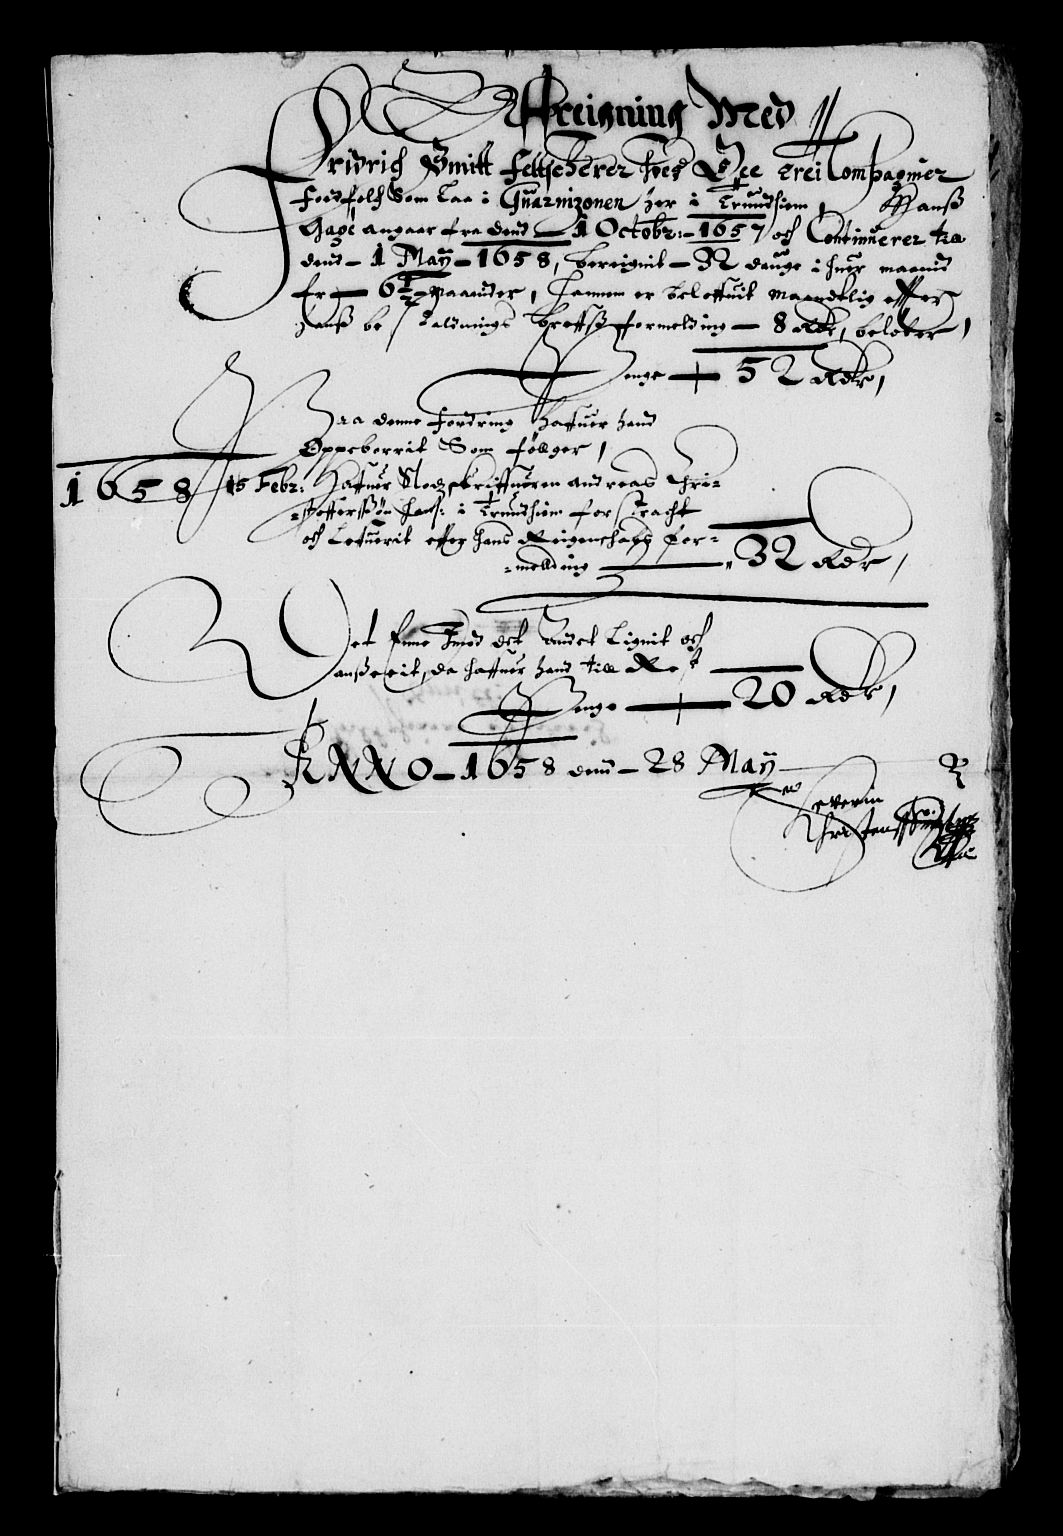 Affreigning Med
Fridrich Smitt Feltscherer hoes De trei Compagnier
Foedfolch Som Laa i Guarnizonen her i Trundhiem, Hanß
Gage angaar fra dend 1 Octobr: 1657 och Continuerer till
dend 1 May 1658, bereignit 32 dauge i huer maanid
Er 6½ Maander, hannem er beloffuit maandtlig effter
hanß bestaldnings breffß formelding 8 Rdr, beløber,
Penge 52 Rdr,
Paa denne fordring haffuer hand
Oppeborrit Som følger,
1658 15 Febr: Haffuer Slodzskriffueren andreas Chri-
-stofferßøn her i Trundhiem forstracht
och Lefuerit effter hans Reigenschaps for-
-melding 32 Rdr,
Det Ene Imod det Andet Lignit och
anßeeit, da haffuer hand till Rest
Penge 20 Rdr,
ANNO 1658 dend 28 May
Severin
Christensø